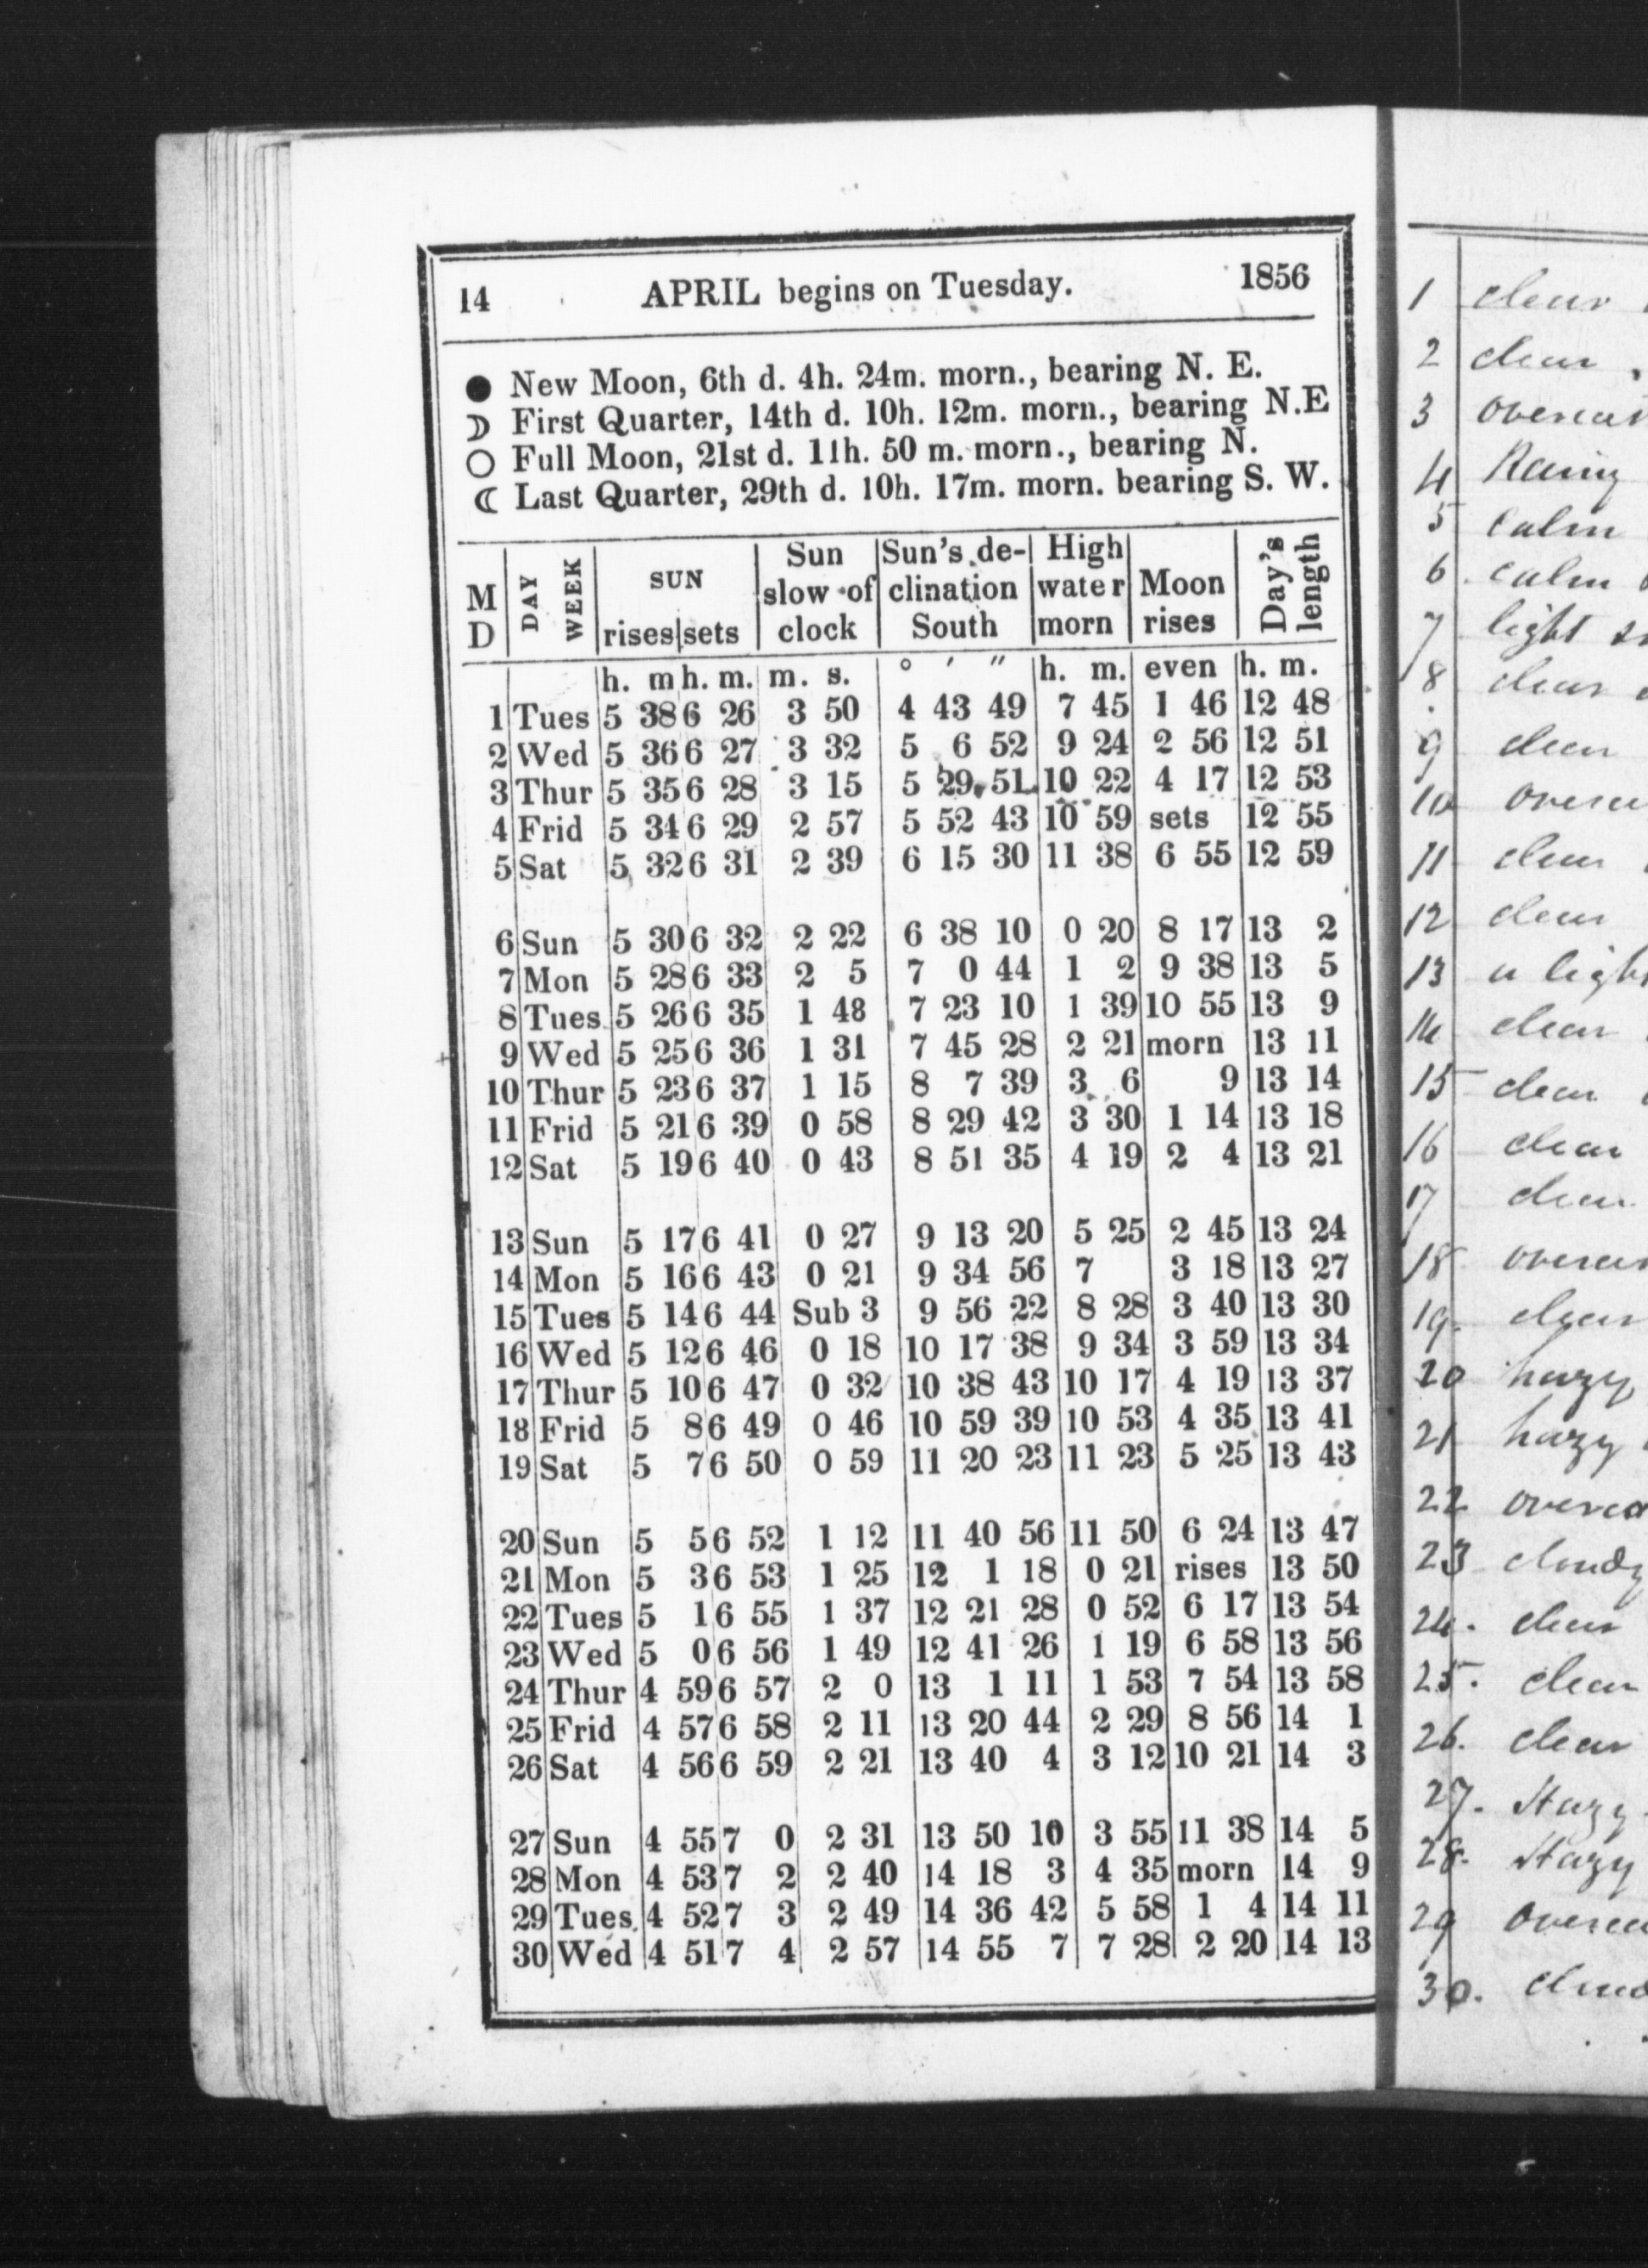 14 APRIL begins on Tuesday. 1856
● New Moon, 6th d. 4h. 24m. morn., bearing N. E.
☽ First Quarter, 14th d. 10h. 12m. morn., bearing N.E
○ Full Moon, 21st d. 11h. 50 m. morn., bearing N.
☾ Last Quarter, 29th d. 10h. 17m. morn. bearing S. W.
M D DAY WEEK SUN rises sets Sun slow of clock Sun's de-clination South High water morn Moon rises Day's length
h. m h. m. m. s. ° ′ ″ h. m. even h. m.
1 Tues 5 38 6 26 3 50 4 43 49 7 45 1 46 12 48
2 Wed 5 36 6 27 3 32 5 6 52 9 24 2 56 12 51
3 Thur 5 35 6 28 3 15 5 29 51 10 22 4 17 12 53
4 Frid 5 34 6 29 2 57 5 52 43 10 59 sets 12 55
5 Sat 5 32 6 31 2 39 6 15 30 11 38 6 55 12 59
6 Sun 5 30 6 32 2 22 6 38 10 0 20 8 17 13 2
7 Mon 5 28 6 33 2 5 7 0 44 1 2 9 38 13 5
8 Tues 5 26 6 35 1 48 7 23 10 1 39 10 55 13 9
9 Wed 5 25 6 36 1 31 7 45 28 2 21 morn 13 11
10 Thur 5 23 6 37 1 15 8 7 39 3 6 9 13 14
11 Frid 5 21 6 39 0 58 8 29 42 3 30 1 14 13 18
12 Sat 5 19 6 40 0 43 8 51 35 4 19 2 4 13 21
13 Sun 5 17 6 41 0 27 9 13 20 5 25 2 45 13 24
14 Mon 5 16 6 43 0 21 9 34 56 7 3 18 13 27
15 Tues 5 14 6 44 Sub 3 9 56 22 8 28 3 40 13 30
16 Wed 5 12 6 46 0 18 10 17 38 9 34 3 59 13 34
17 Thur 5 10 6 47 0 32 10 38 43 10 17 4 19 13 37
18 Frid 5 8 6 49 0 46 10 59 39 10 53 4 35 13 41
19 Sat 5 7 6 50 0 59 11 20 23 11 23 5 25 13 43
20 Sun 5 5 6 52 1 12 11 40 56 11 50 6 24 13 47
21 Mon 5 3 6 53 1 25 12 1 18 0 21 rises 13 50
22 Tues 5 1 6 55 1 37 12 21 28 0 52 6 17 13 54
23 Wed 5 0 6 56 1 49 12 41 26 1 19 6 58 13 56
24 Thur 4 59 6 57 2 0 13 1 11 1 53 7 54 13 58
25 Frid 4 57 6 58 2 11 13 20 44 2 29 8 56 14 1
26 Sat 4 56 6 59 2 21 13 40 4 3 12 10 21 14 3
27 Sun 4 55 7 0 2 31 13 50 10 3 55 11 38 14 5
28 Mon 4 53 7 2 2 40 14 18 3 4 35 morn 14 9
29 Tues. 4 52 7 3 2 49 14 36 42 5 58 1 4 14 11
30 Wed 4 51 7 4 2 57 14 55 7 7 28 2 20 14 13
1 clear
2 clear
3 overcas
4 Rainy
5 Calm
6 calm
7 light
8 clear
9 clear
10 overc
11 clear
12 clear
13 a light
14 clear
15 clear
16 clear
17 clear
18 overcas
19. clear
20 hazy
21 hazy
22 overca
23 cloudy
24. clear
25. clear
26. clear
27. Hazy
28. Hazy
29 overca
30. cloud